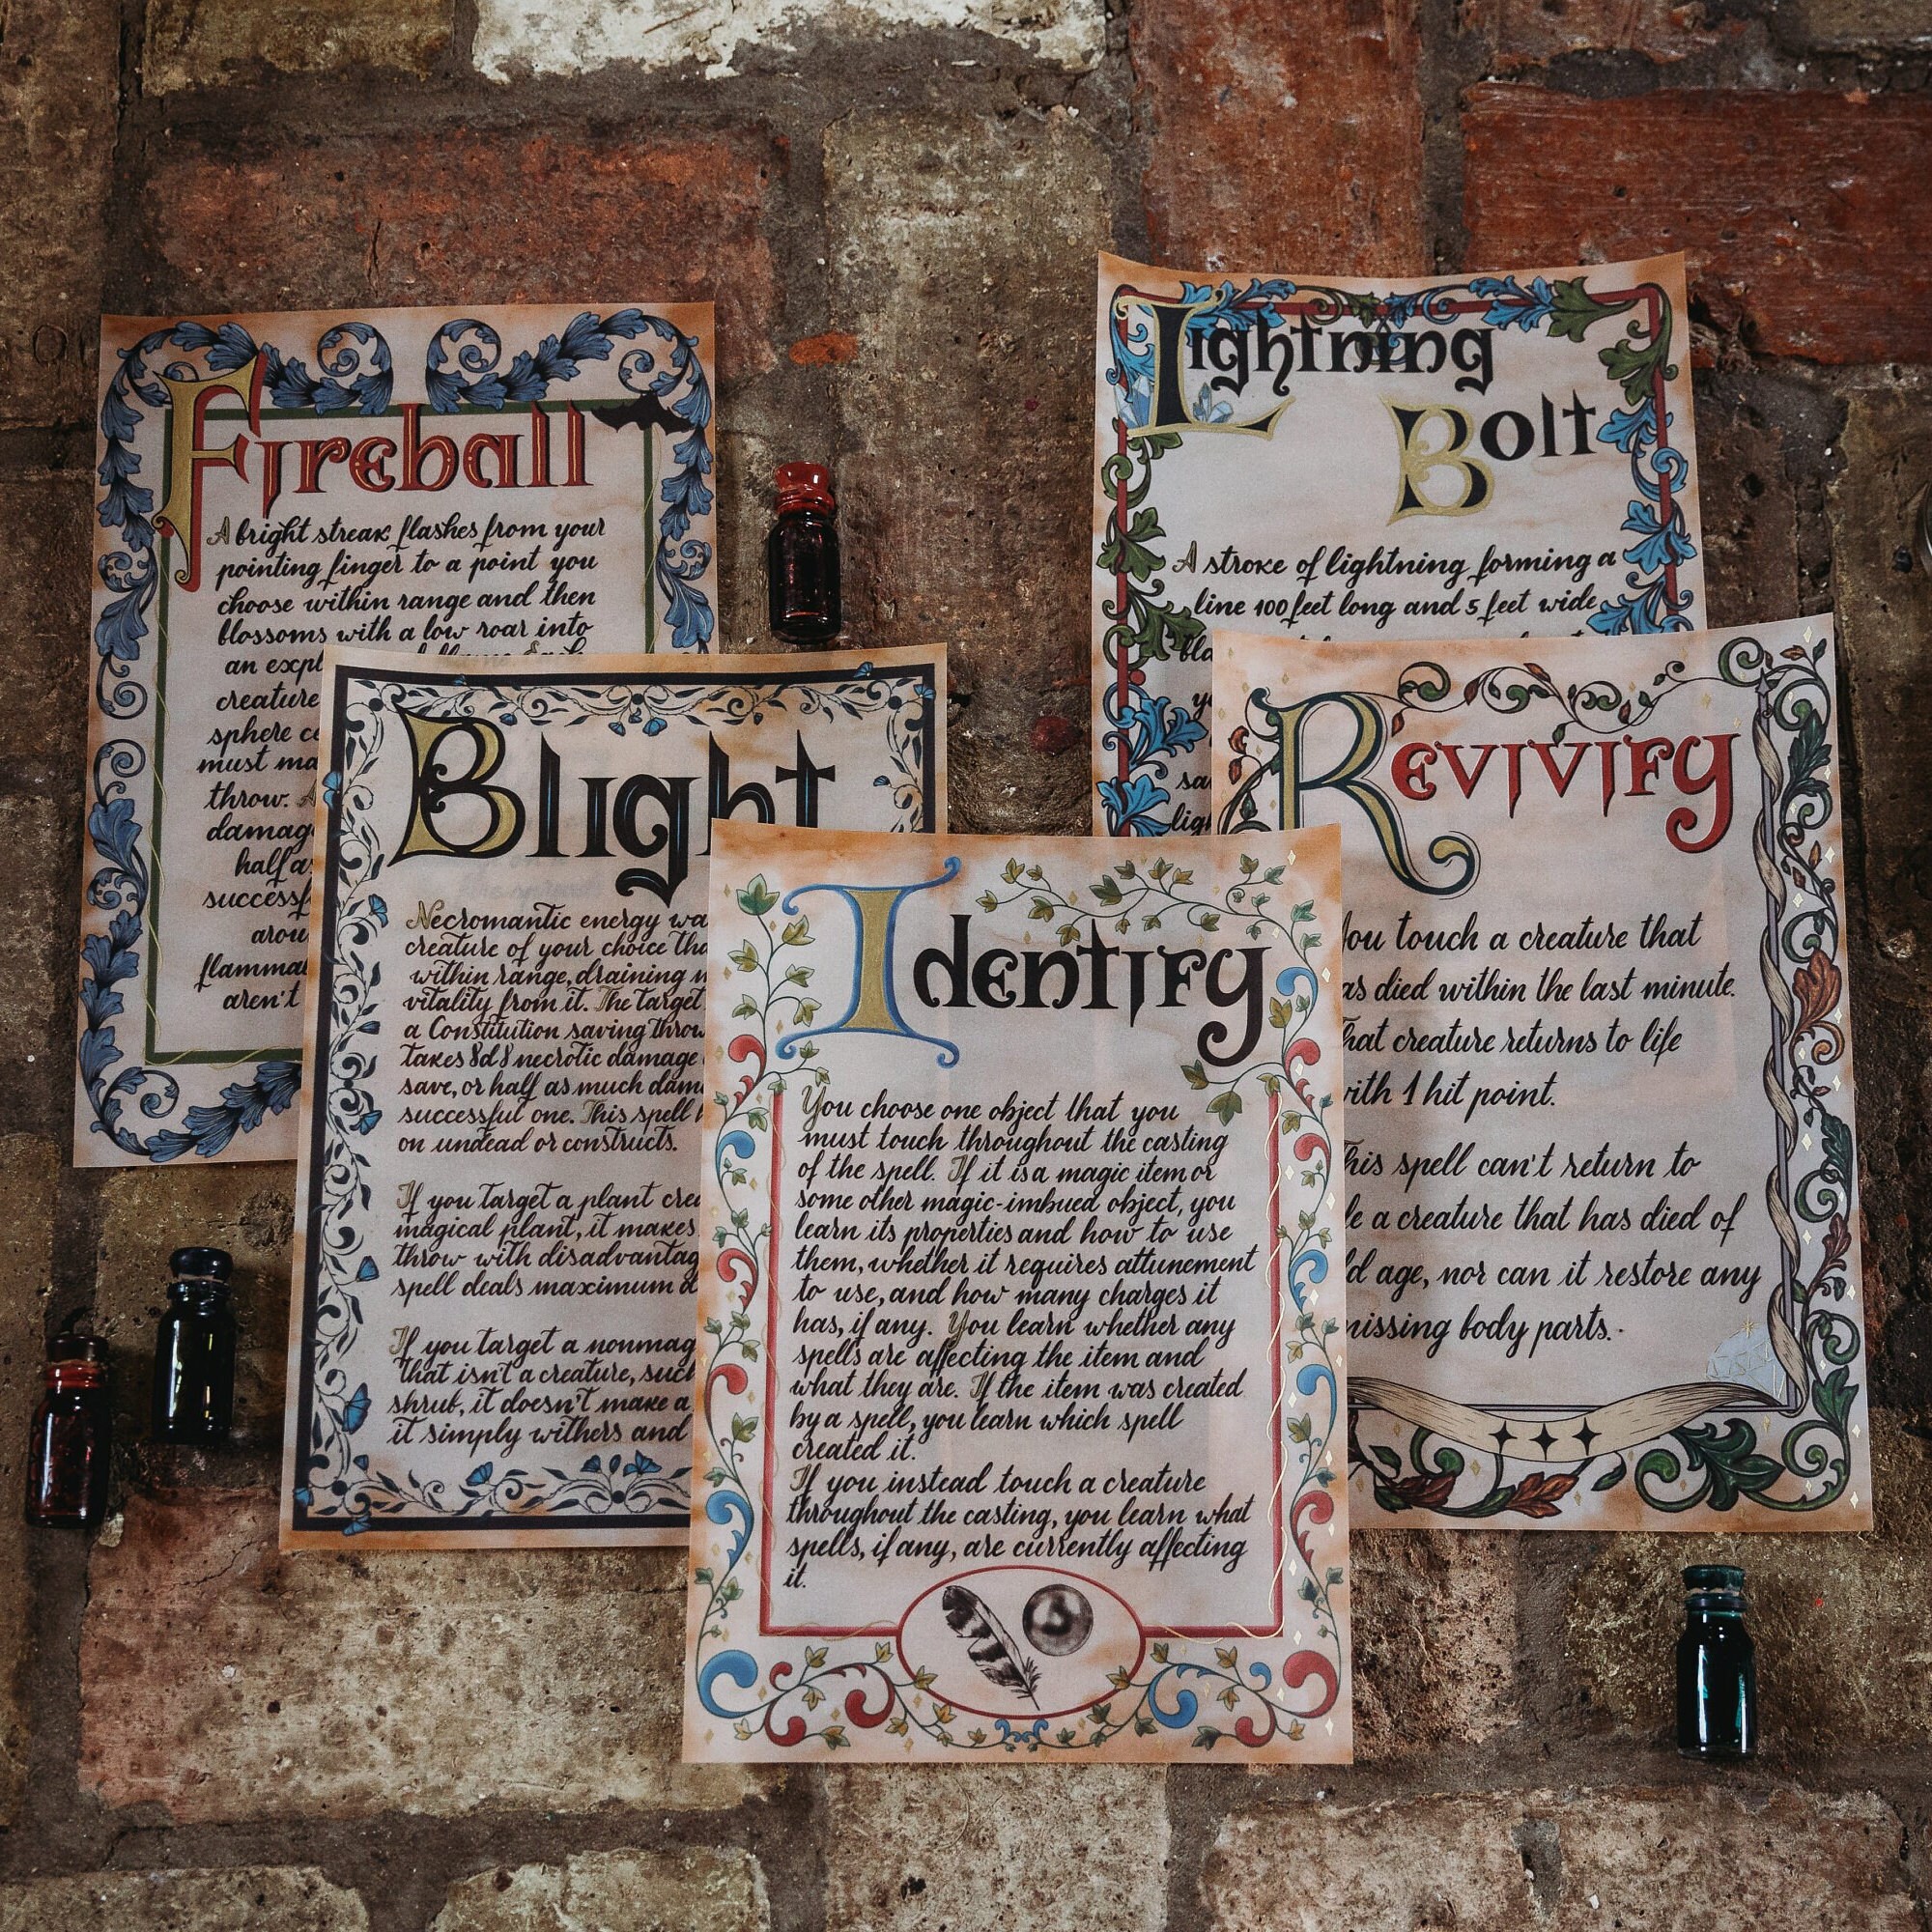 Fireball
A bright streak flashes from your
pointing finger to a point you
choose within range and then
blossoms with a low roar into
an
creature
sphere
must
throw.
damage
half
aren't
Lightning
Bolt
A stroke of lightning forming a
line 100 feet long and 5 feet wide
Blight
Necromantic energy
creature of your choice
within range, draining
vitality from it. The target
a Constitution saving throw
takes 8d8 necrotic damage
save, or half as much
successful one. This spell
on undead or constructs.
If you target a plant
magical plant, it makes
throw with
spell deals maximum
If you target a
that isn't a creature, such
shrub, it doesn't make a
it simply withers and
Revivify
You touch a creature that
died within the last minute.
That creature returns to life
with 1 hit point.
This spell can't return to
a creature that has died of
age, nor can it restore any
missing body parts.
Identify
You choose one object that you
must touch throughout the casting
of the spell. If it is a magic item or
some other magic-imbued object, you
learn its properties and how to use
them, whether it requires attunement
to use, and how many charges it
has, if any. You learn whether any
spells are affecting the item and
what they are. If the item was created
by a spell, you learn which spell
created it.
If you instead touch a creature
throughout the casting, you learn what
spells, if any, are currently affecting
it.